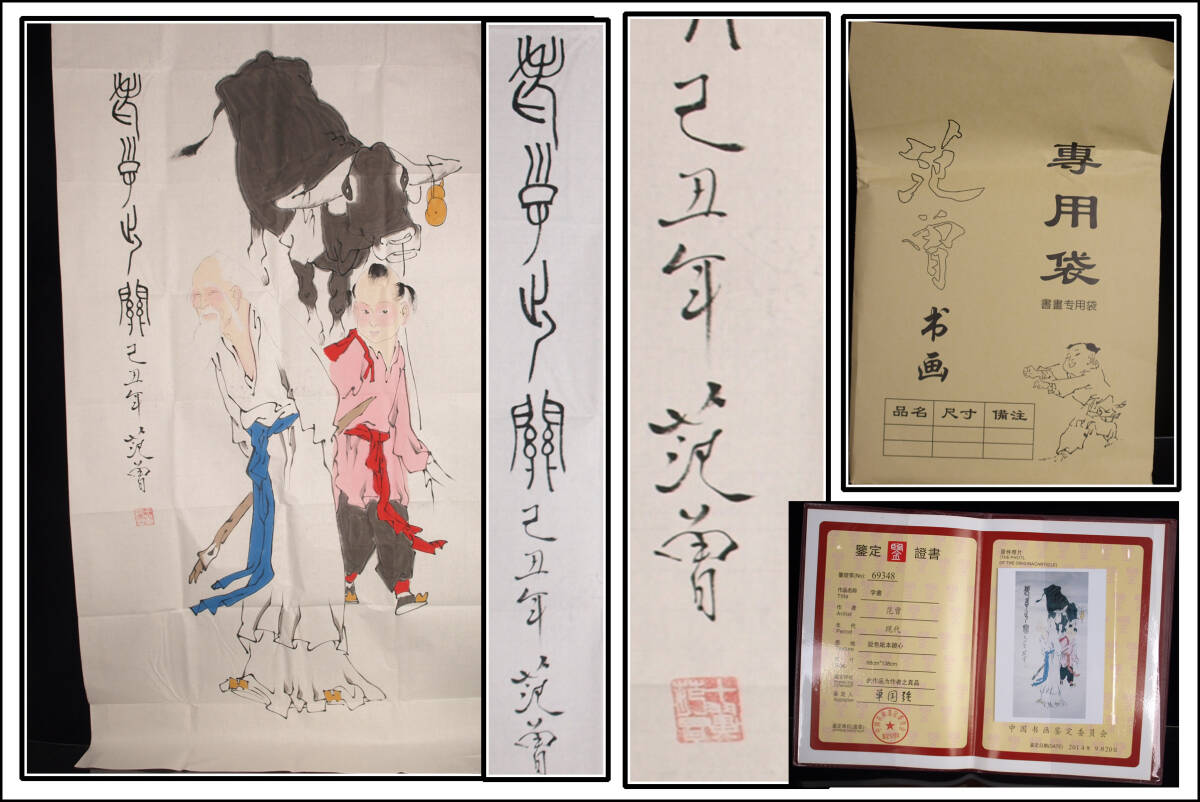 老子出關
己丑年
范曾
老子出關
己丑年
范曾
己丑年
范曾
專用袋
書畫专用袋
范曾
书画
品名 尺寸 備注
鉴定 鑒 證書
(No): 69348
作品名称 字畫
Title
作者
Artist 范曾
年代
Period 現代
設色紙本鏡心
68cm*138cm
此作品为作者之真品
單国强
(THE PHOTO
OF THE ORIGINAL ARTICLE)
中国书画鉴定委员会
鉴定日期(DATE) 2014年9月20日